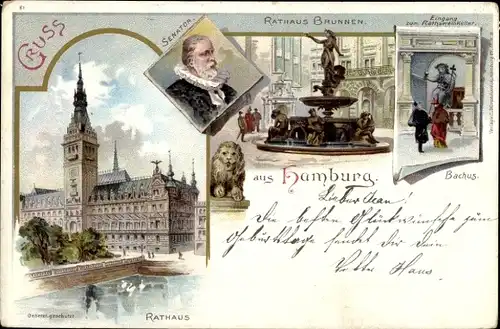 61
Gruss
SENATOR.
RATHAUS BRUNNEN.
Eingang
zum Rathsweinkeller.
Bachus.
aus Hamburg.
Die besten Glückwünsche zum
Geburtstage sendet dir dein
Hans
General-geschützt
RATHAUS